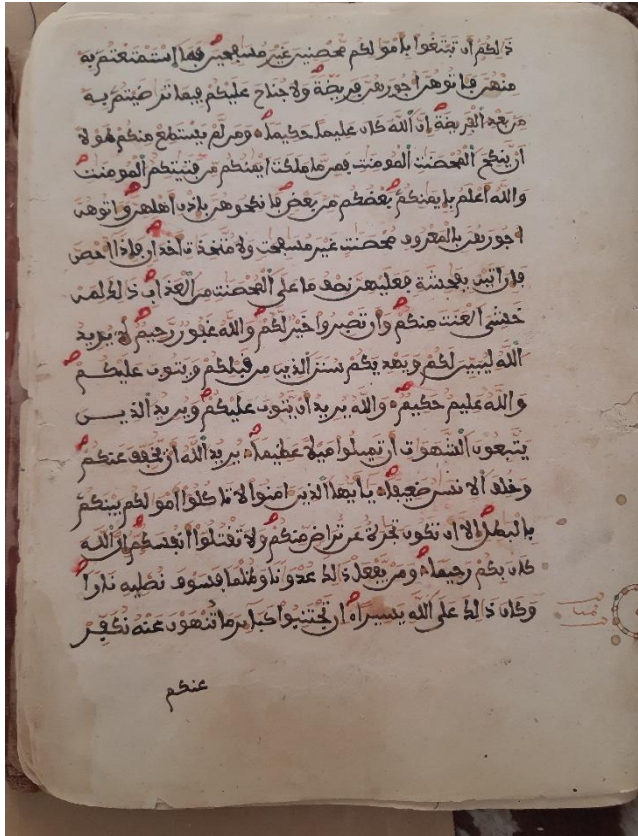 ذلكم أن تبتغوا بأموالكم محصنين غير مسافحين فما استمتعتم به
منهن فاتوهن أجورهن فريضة ولا جناح عليكم فيما تراضيتم به
من بعد الفريضة إن الله كان عليما حكيما ومن لم يستطع منكم طولا
أن ينكح المحصنت المومنت فمن ما ملكت أيمنكم من فتيتكم المومنت
والله أعلم بإيمنكم بعضكم من بعض فانكحوهن بإذن أهلهن واتوهن
أجورهن بالمعروف محصنت غير مسفحت ولا متخذت أخدان فإذا أحصن
فإن أتين بفحشة فعليهن نصف ما على المحصنت من العذاب ذلك لمن
خشي العنت منكم وأن تصبروا خير لكم والله غفور رحيم يريد
الله ليبين لكم ويهديكم سنن الذين من قبلكم ويتوب عليكم
والله عليم حكيم والله يريد أن يتوب عليكم ويريد الذين
يتبعون الشهوات أن تميلوا ميلا عظيما يريد الله أن يخفف عنكم
وخلق الانسن ضعيفا يأيها الذين امنوا لا تاكلوا أمولكم بينكم
بالبطل إلا أن تكون تجرة عن تراض منكم ولا تقتلوا أنفسكم إن الله
كان بكم رحيما ومن يفعل ذلك عدونا وظلما فسوف نصليه نارا
وكان ذلك على الله يسيرا إن تجتنبوا كبائر ما تنهون عنه نكفر
عنكم